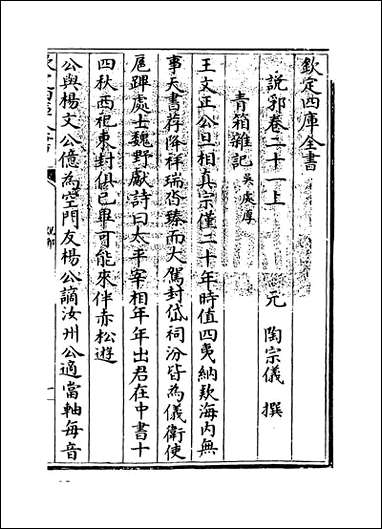 欽定四庫全書
說郛卷二十一上
元 陶宗儀 撰
青箱雜記 吳處厚
王文正公旦相真宗僅二十年時值四夷納款海內無
事天書荐降祥瑞沓臻而大駕封岱祠汾皆為儀衛使
扈蹕處士魏野獻詩曰太平宰相年年出君在中書十
四秋西祀東封俱已畢可能來伴赤松遊
公與楊文公億為空門友楊公謫汝州公適當軸每音